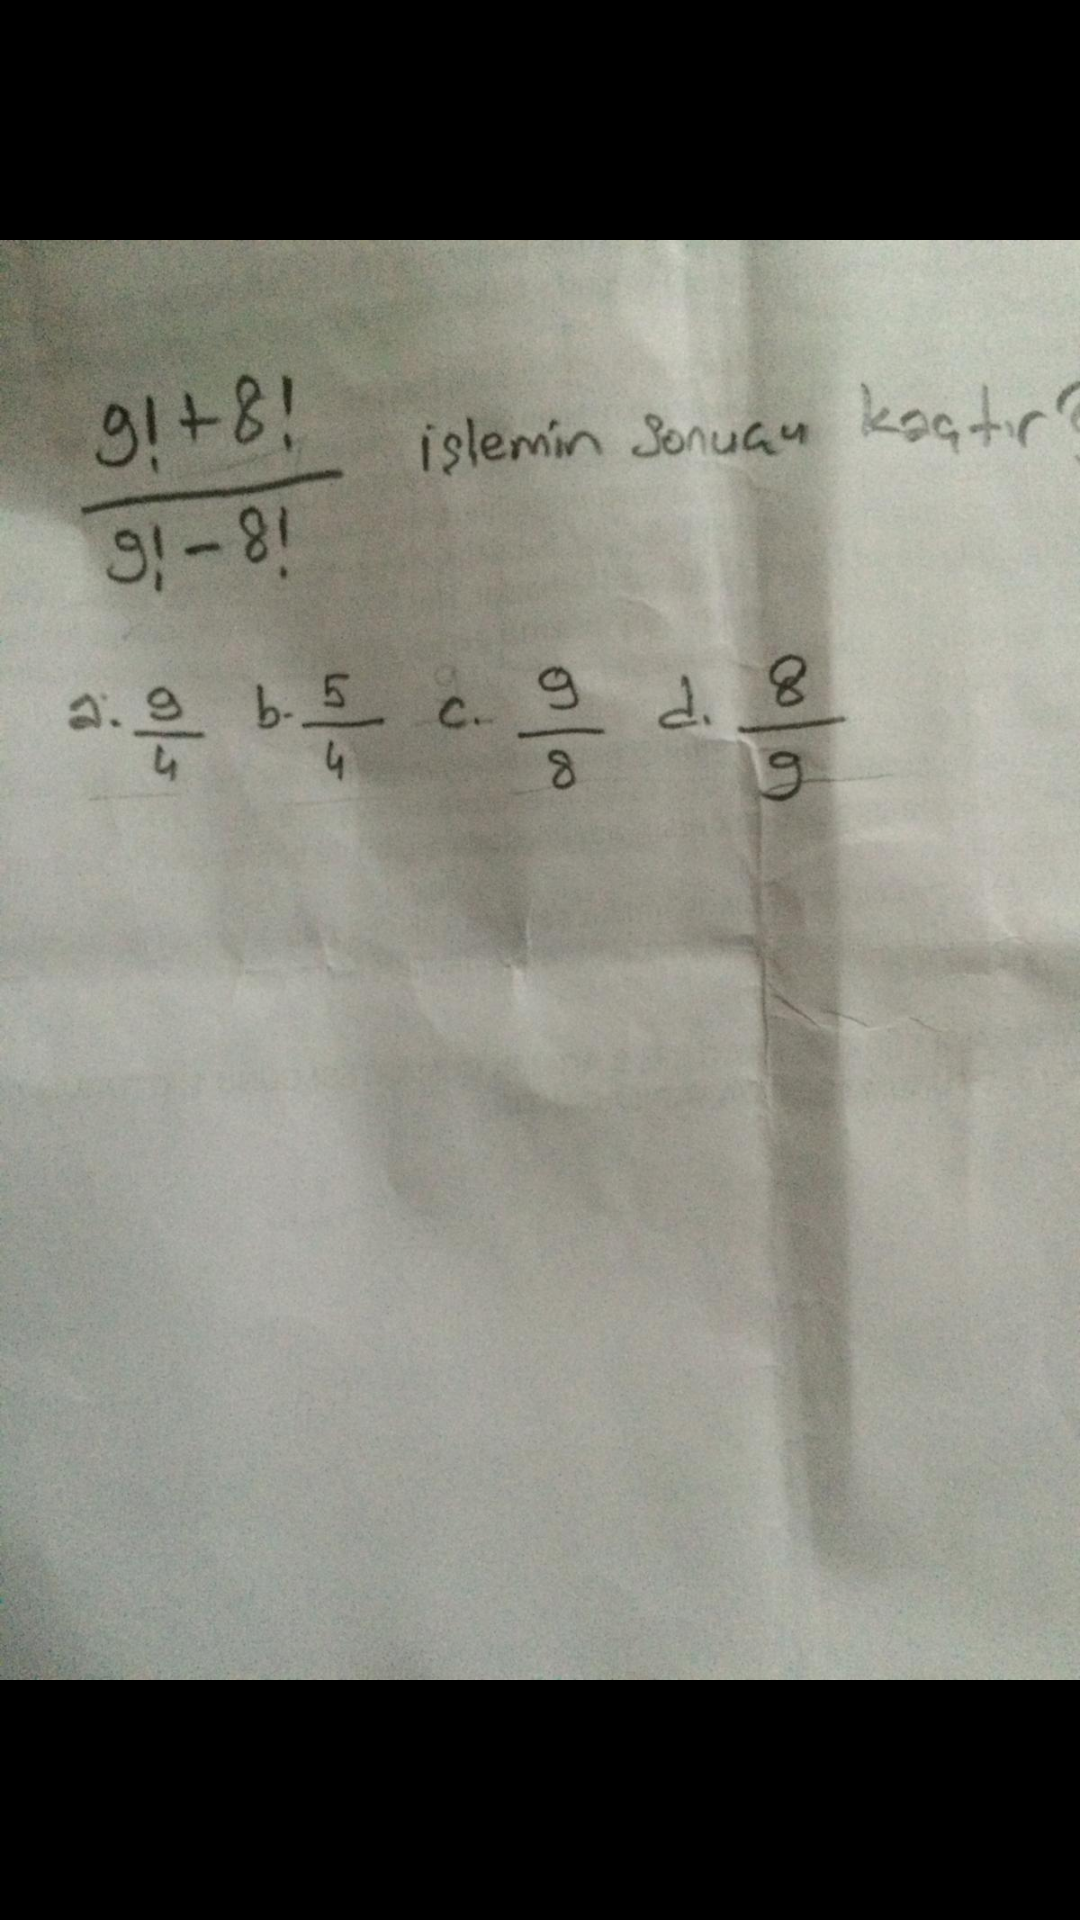 9!+8!
işlemin sonucu kaçtır?
9!-8!
a. 9/4 b. 5/4 c. 9/8 d. 8/9